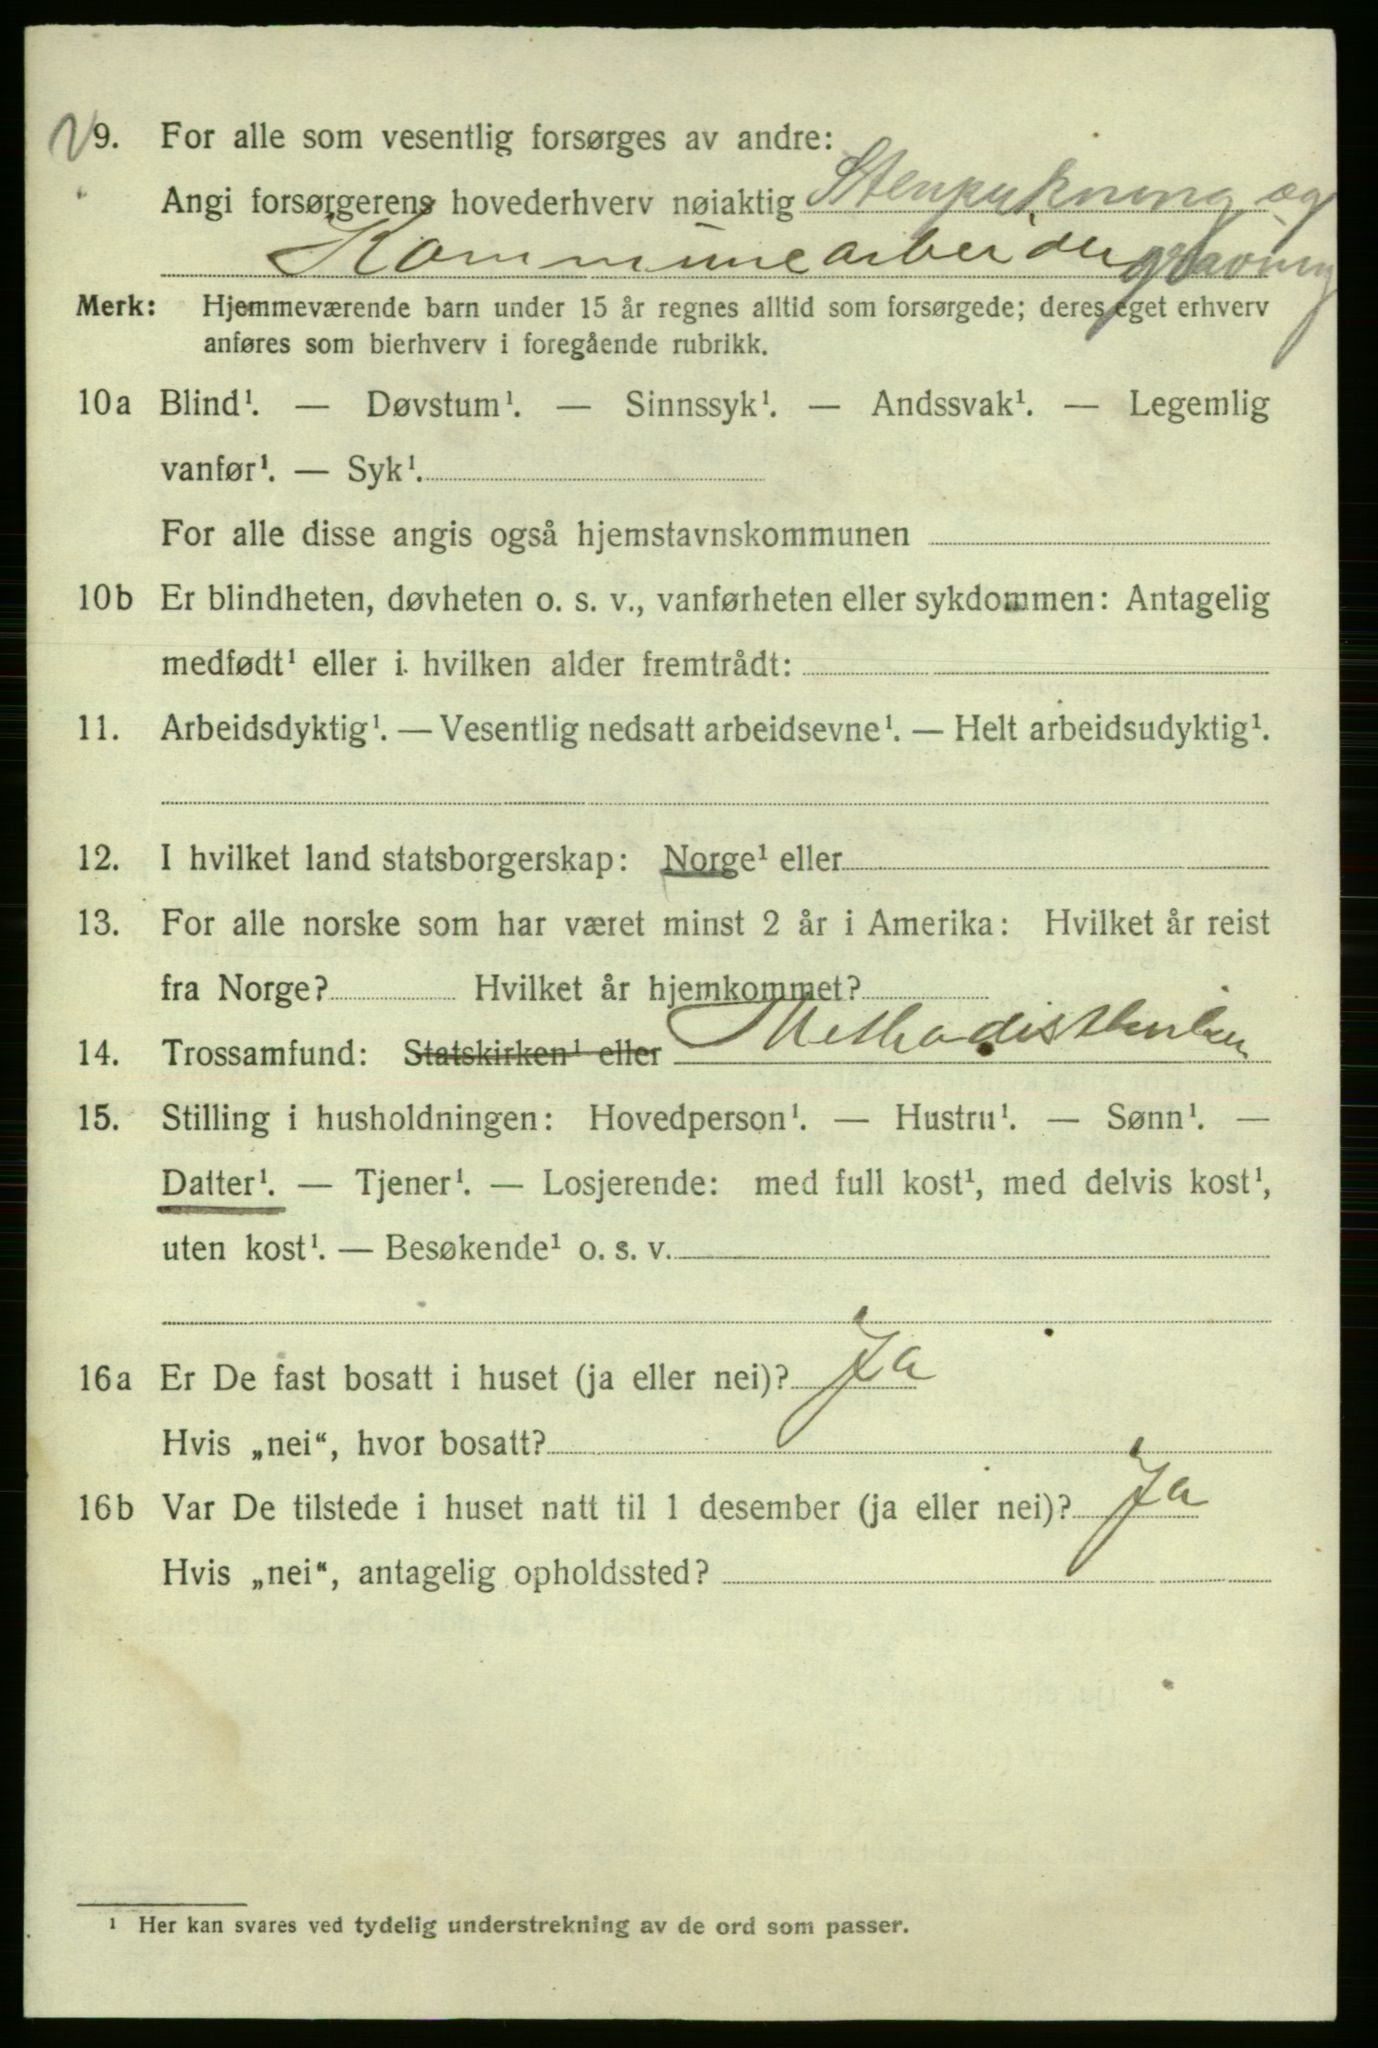 9. For alle som vesentlig forsørges av andre:
Angi forsørgerens hovederhverv nøiaktig Stenpukning og
Kommunearbeider graving
Merk: Hjemmeværende barn under 15 år regnes alltid som forsørgede; deres eget erhverv
anføres som bierhverv i foregående rubrikk.
10a Blind¹. — Døvstum¹. — Sinnssyk¹. — Andssvak¹. — Legemlig
vanfør¹. — Syk¹.
For alle disse angis også hjemstavnskommunen
10b Er blindheten, døvheten o. s. v., vanførheten eller sykdommen: Antagelig
medfødt¹ eller i hvilken alder fremtrådt:
11. Arbeidsdyktig¹. — Vesentlig nedsatt arbeidsevne¹. — Helt arbeidsudyktig¹.
12. I hvilket land statsborgerskap: Norge¹ eller
13. For alle norske som har været minst 2 år i Amerika: Hvilket år reist
fra Norge? Hvilket år hjemkommet?
14. Trossamfund: Statskirken¹ eller Methodistkirken
15. Stilling i husholdningen: Hovedperson¹. — Hustru¹. — Sønn¹. —
Datter¹. — Tjener¹. — Losjerende: med full kost¹, med delvis kost¹,
uten kost¹. — Besøkende¹ o. s. v.
16a Er De fast bosatt i huset (ja eller nei)? Ja
Hvis „nei“, hvor bosatt?
16b Var De tilstede i huset natt til 1 desember (ja eller nei)? Ja
Hvis „nei“, antagelig opholdssted?
¹ Her kan svares ved tydelig understrekning av de ord som passer.